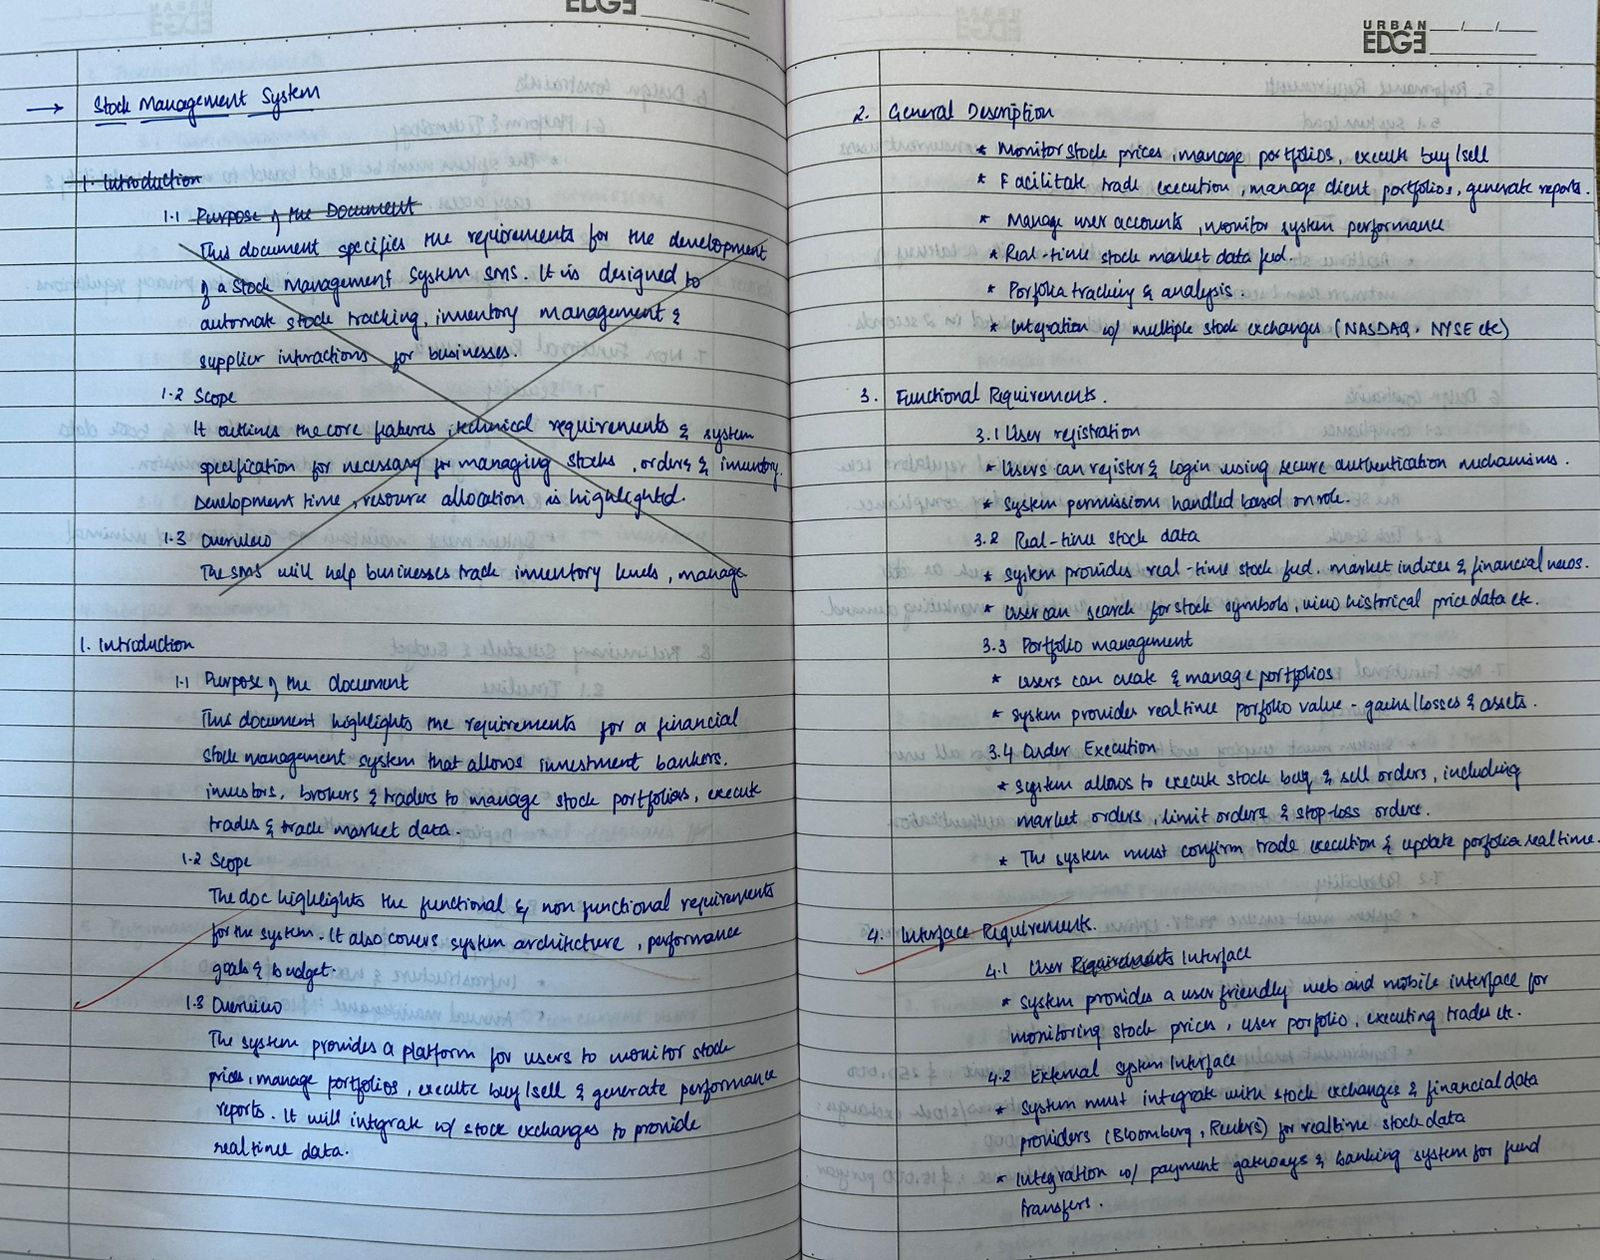 EDGE
→ Stock Management System
1. Introduction
1.1 Purpose of the Document
This document specifies the requirements for the development
of a Stock Management System SMS. It is designed to
automate stock tracking, inventory management &
supplier interactions for businesses.
1.2 Scope
It outlines the core features, technical requirements & system
specification for necessary for managing stocks, orders & inventory.
Development time, resource allocation is highlighted.
1.3 Overview
The SMS will help businesses track inventory levels, manage
1. Introduction
1.1 Purpose of the document
This document highlights the requirements for a financial
stock management system that allows investment bankers,
investors, brokers & traders to manage stock portfolios, execute
trades & track market data.
1.2 Scope
The doc highlights the functional & non functional requirements
for the system. It also covers system architecture, performance
goals & budget.
1.3 Overview
The system provides a platform for users to monitor stock
prices, manage portfolios, execute buy/sell & generate performance
reports. It will integrate w/ stock exchanges to provide
real time data.
URBAN
EDGE
2. General Description
* Monitor stock prices, manage portfolios, execute buy/sell
* Facilitate trade execution, manage client portfolios, generate reports.
* Manage user accounts, monitor system performance
* Real-time stock market data feed.
* Porfolia tracking & analysis.
* Integration w/ multiple stock exchanges (NASDAQ, NYSE etc)
3. Functional Requirements.
3.1 User registration
* Users can register & login using secure authentication mechanisms.
* System permissions handled based on role.
3.2 Real-time stock data
* System provides real-time stock feed, market indices & financial news.
* User can search for stock symbols, view historical price data etc.
3.3 Portfolio management
* Users can create & manage portfolios
* System provides realtime porfolio value - gains/losses & assets.
3.4 Order Execution
* System allows to execute stock buy & sell orders, including
market orders, limit orders & stop-loss orders.
* The system must confirm trade execution & update porfolia real time.
4. Interface Requirements.
4.1 User Requirements Interface
* System provides a user friendly web and mobile interface for
monitoring stock prices, user porfolio, executing trades etc.
4.2 External system Interface
* System must integrate with stock exchanges & financial data
providers (Bloomberg, Reuters) for realtime stock data
* Integration w/ payment gateways & banking system for fund
transfers.